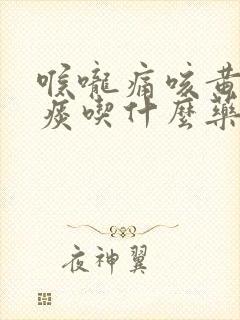 喉嚨痛咳黃
痰喫什麼藥
夜神翼